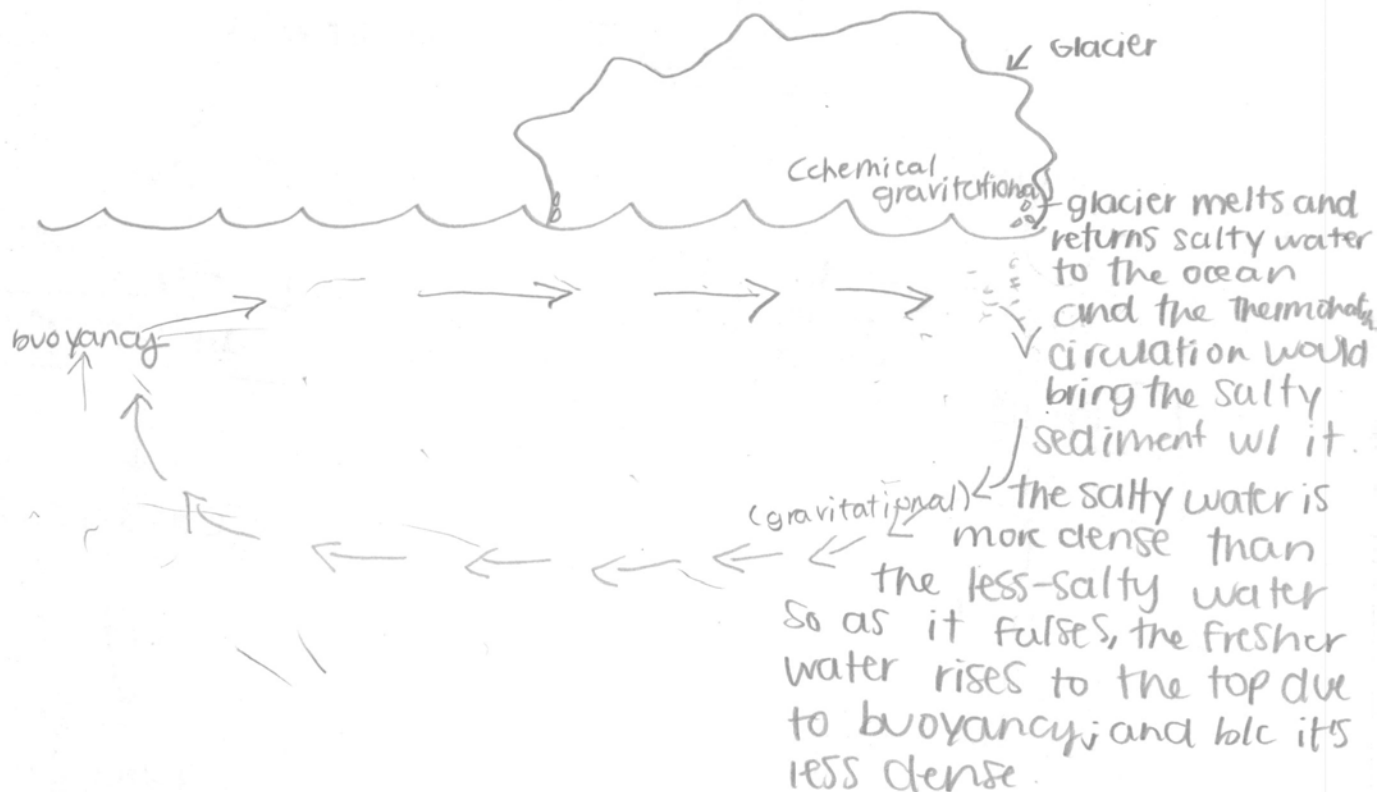 Glacier
(chemical
gravitational)
glacier melts and
returns salty water
to the ocean
and the
circulation would
bring the salty
sediment w/ it.
buoyancy
(gravitational)
the salty water is
more dense than
the less-salty water
so as it falses, the fresher
water rises to the top due
to buoyancy; and b/c it's
less dense.